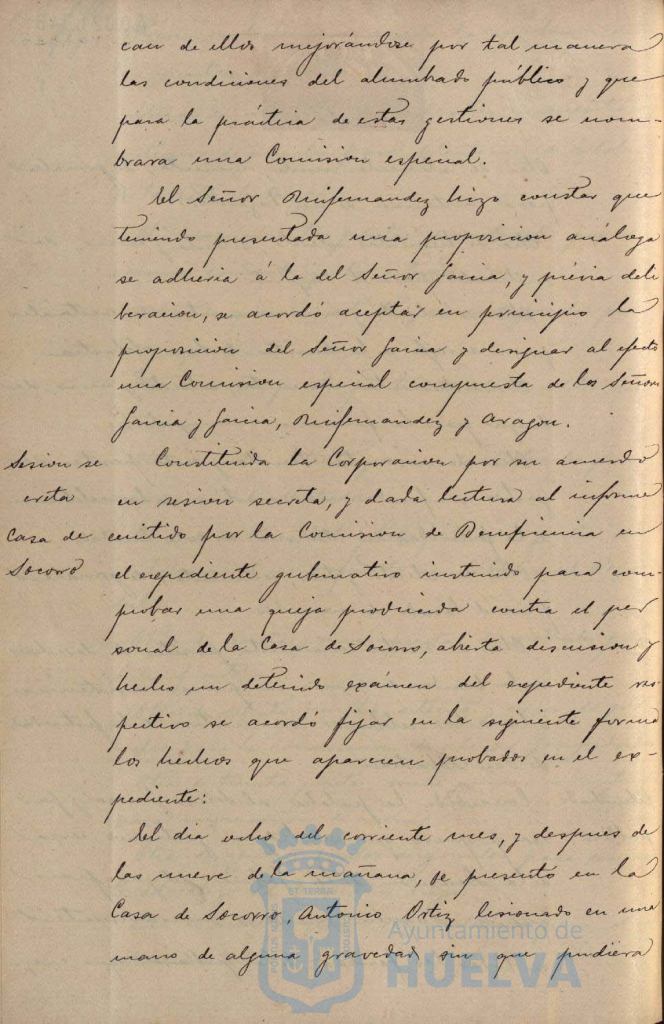 can de ellos mejorándose por tal manera
las condiciones del alumbrado público y que
para la práctica de estas gestiones se nom-
brara una Comision especial.
El Señor Ruifernandez hizo constar que
teniendo presentada una proposicion análoga
se adheria á la del Señor Garcia, y prévia deli
beracion, se acordó aceptar en principio la
proposicion del Señor Garcia y designar al efecto
una Comision especial compuesta de los Señores
Garcia y Garcia, Ruifernandez y Aragon.
Sesion se
creta
Casa de
Socorro
Constituida la Corporacion por su acuerdo
en sesion secreta, y dada lectura al informe
emitido por la Comision de Beneficencia en
el expediente gubernativo instruido para com-
probar una queja producida contra el per
sonal de la Casa de Socorro, abierta discusion y
hecho un detenido exámen del expediente res-
pectivo se acordó fijar en la siguiente forma
los hechos que aparecen probados en el ex-
pediente:
El dia ocho del corriente mes, y despues de
las nueve de la mañana, se presentó en la
Casa de Socorro, Antonio Ortiz lesionado en una
mano de alguna gravedad sin que pudiera
Ayuntamiento de
HUELVA